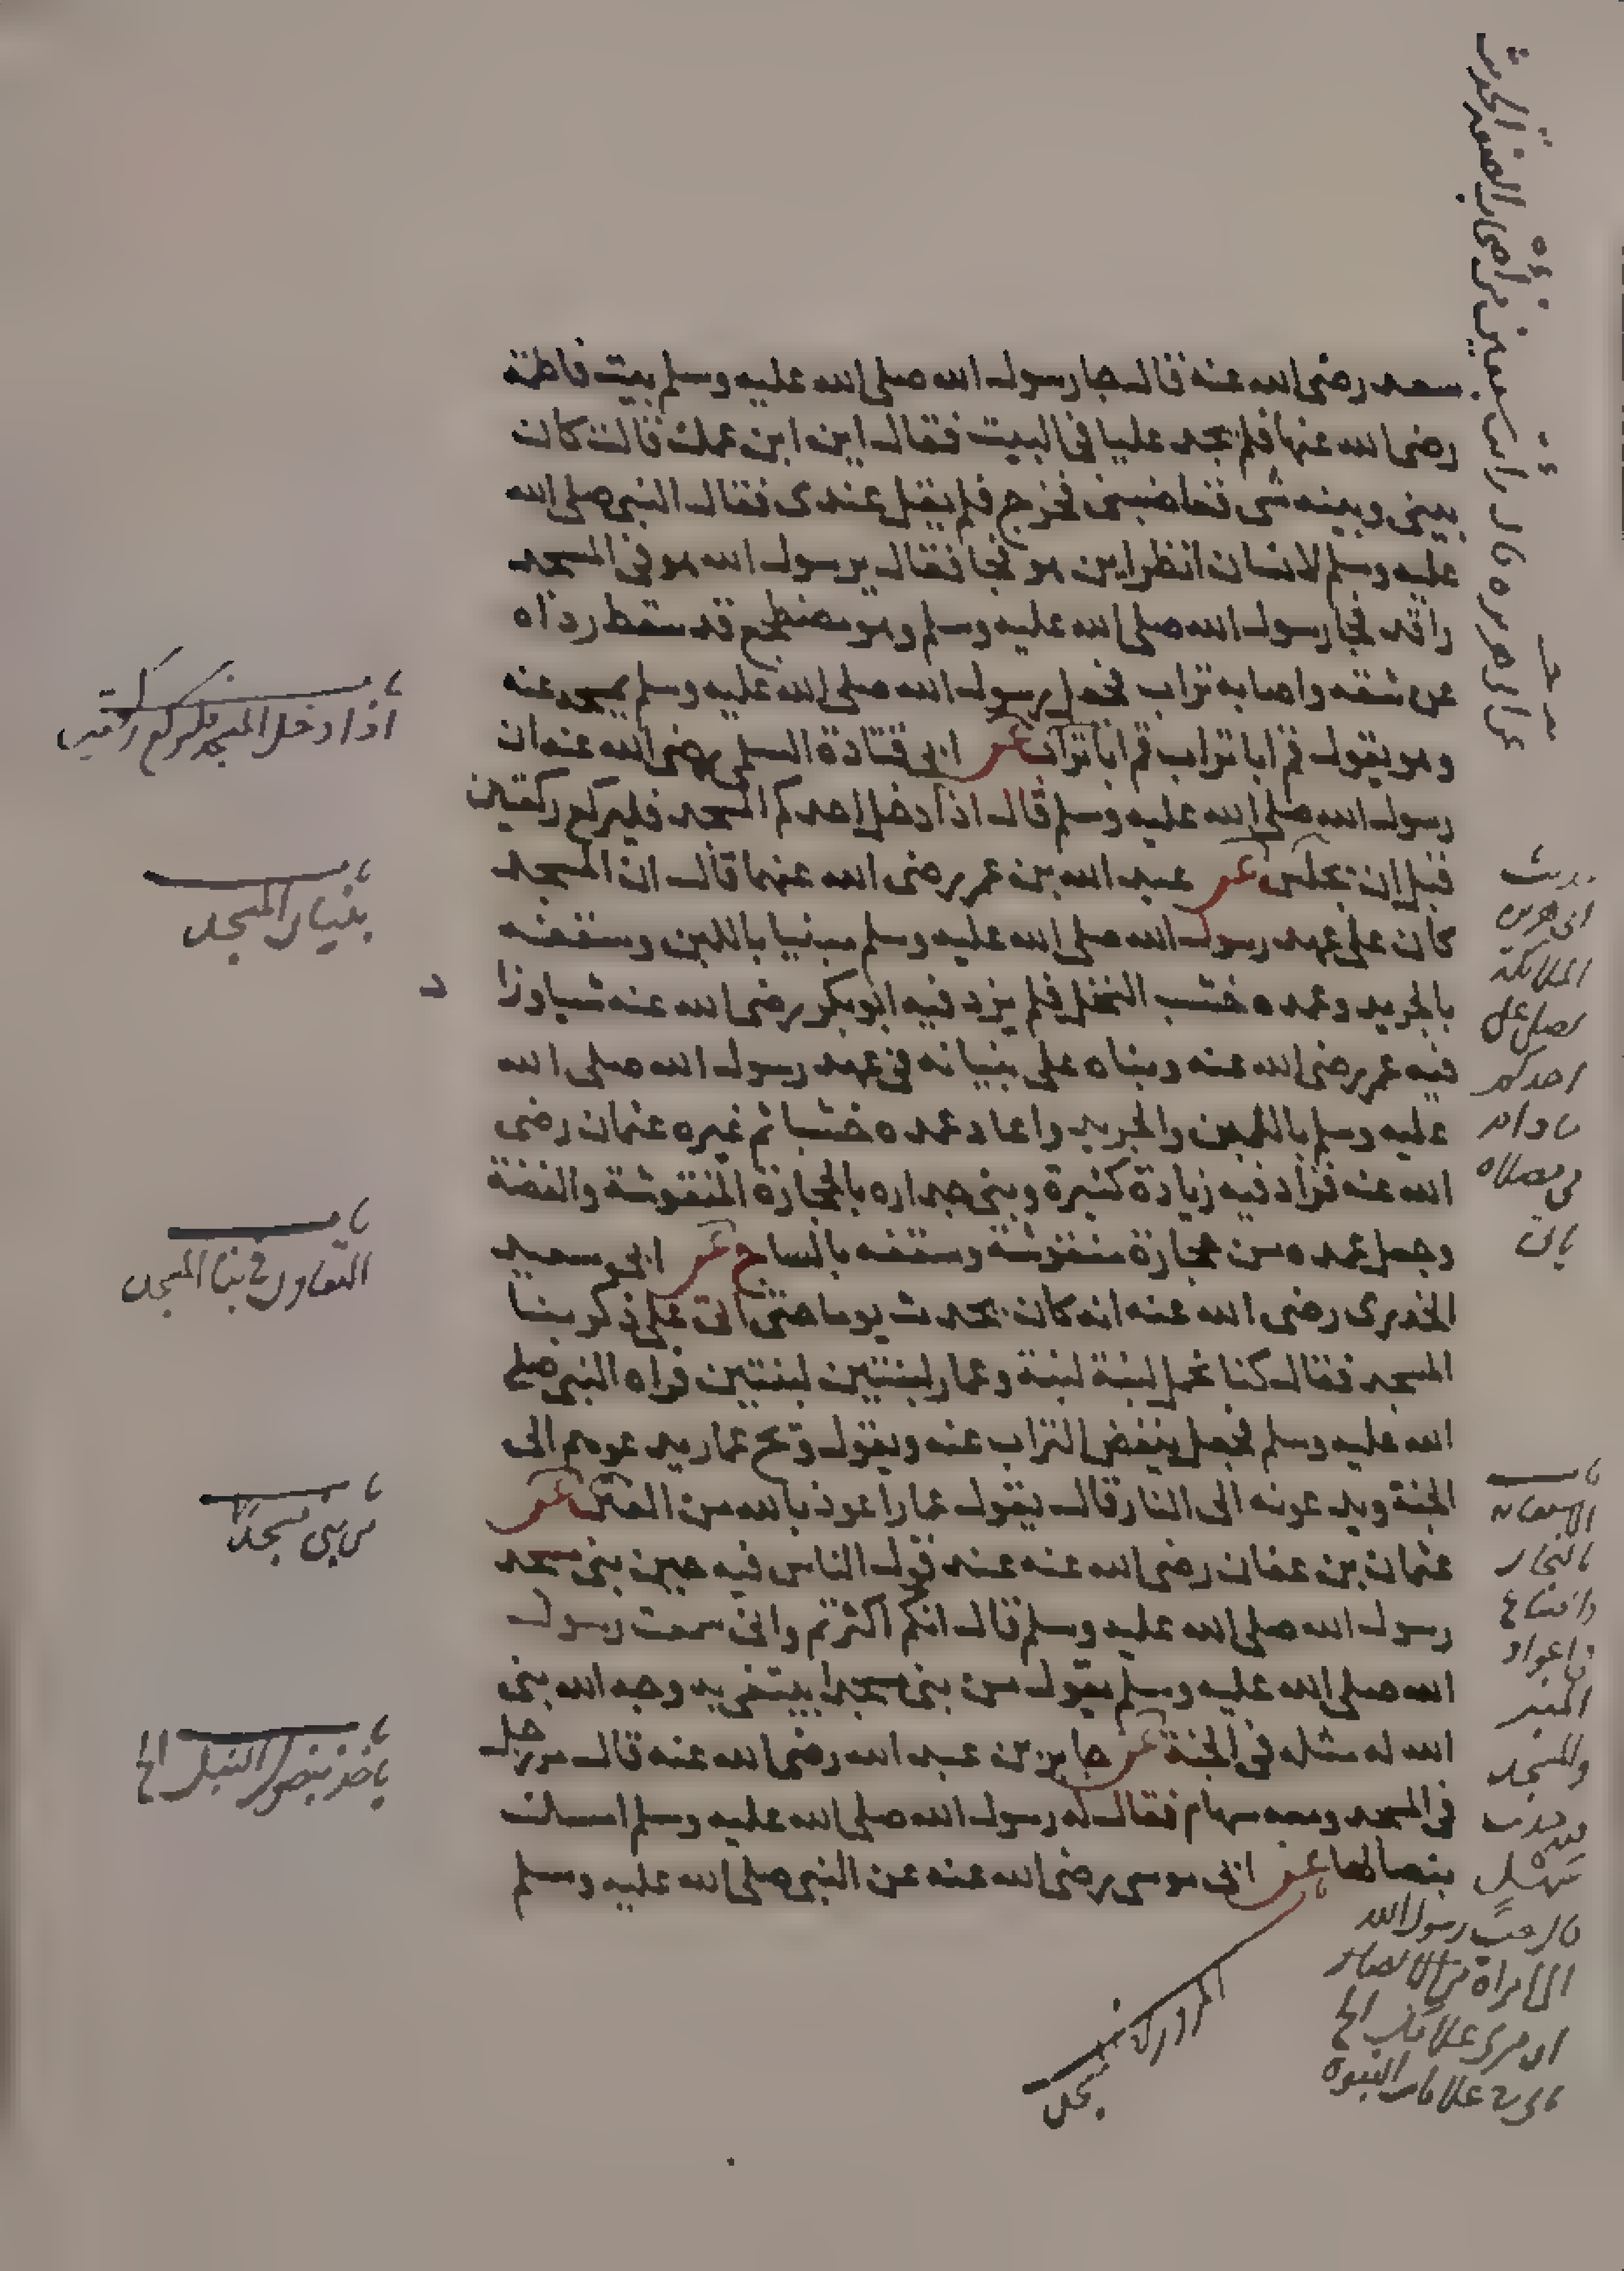 سعد رضى الله عنه قال جا رسول الله صلى الله عليه وسلم بيت فاطمة
رضى الله عنها فلم يجد عليا فى البيت فقال اين ابن عمك قالت كان
بينى وبينه شى فغاضبنى فخرج فلم يقل عندى فقال النبى صلى الله
عليه وسلم لانسان انظر اين هو فجا فقال يرسول الله هو فى المسجد
راقد فجا رسول الله صلى الله عليه وسلم وهو مضطجع قد سقط رداه
عن شقه واصابه تراب فجعل رسول الله صلى الله عليه وسلم يمسحه عنه
وهو يقول قم ابا تراب قم ابا تراب عن ابى قتادة السلمى رضى الله عنه ان
رسول الله صلى الله عليه وسلم قال اذا دخل احدكم المسجد فليركع ركعتين
قبل ان يجلس عن عبد الله بن عمر رضى الله عنهما قال ان المسجد
كان على عهد رسول الله صلى الله عليه وسلم مبنيا باللبن وسقفه
بالجريد وعمده خشب النخل فلم يزد فيه ابو بكر رضى الله عنه شيا وزا
د
فيه عمر رضى الله عنه وبناه على بنيانه فى عهد رسول الله صلى الله
عليه وسلم باللبن والجريد واعاد عمده خشبا ثم غيره عثمان رضى
الله عنه فزاد فيه زيادة كثيرة وبنى جداره بالحجارة المنقوشة والفضة
وجعل عمده من حجارة منقوشة وسقفه بالساج عن ابى سعيد
الخدرى رضى الله عنه انه كان يحدث يوما حتى اتى على ذكر بنا
المسجد فقال كنا نحمل لبنة لبنة وعمار لبنتين لبنتين فراه النبى صلى
الله عليه وسلم فجعل ينفض التراب عنه ويقول ويح عمار يدعوهم الى
الجنة ويدعونه الى النار قال يقول عمار اعوذ بالله من الفتن عن
عثمان بن عفان رضى الله عنه عند قول الناس فيه حين بنى مسجد
رسول الله صلى الله عليه وسلم قال انكم اكثرتم وانى سمعت رسول
الله صلى الله عليه وسلم يقول من بنى مسجدا يبتغى به وجه الله بنى
الله له مثله فى الجنة عن جابر بن عبد الله رضى الله عنه قال مر رجل
فى المسجد ومعه سهام فقال له رسول الله صلى الله عليه وسلم امسك
بنصالها عن ابى موسى رضى الله عنه عن النبى صلى الله عليه وسلم
باب
اذا دخل المسجد فليركع ركعتين
باب
بنيان المسجد
باب
التعاون فى بنا المسجد
باب
من بنى مسجدا
باب
ياخذ بنصول النبل الخ
باب
المرور فى
المسجد
عن ابى هريره قال رايت سبعين من اصحاب الصفة الحديث
حديث
ابى هريره
الملايكة
تصلى على
احدكم
ما دام
فى مصلاه
ياتى
باب
الاستعانة
بالنجار
والصناع
فى اعواد
المنبر
والمسجد
فيه حديث
سهل
قال بعث رسول الله
الى امراة من الانصار
ان مرى غلامك الخ
ياتى فى علامات النبوة